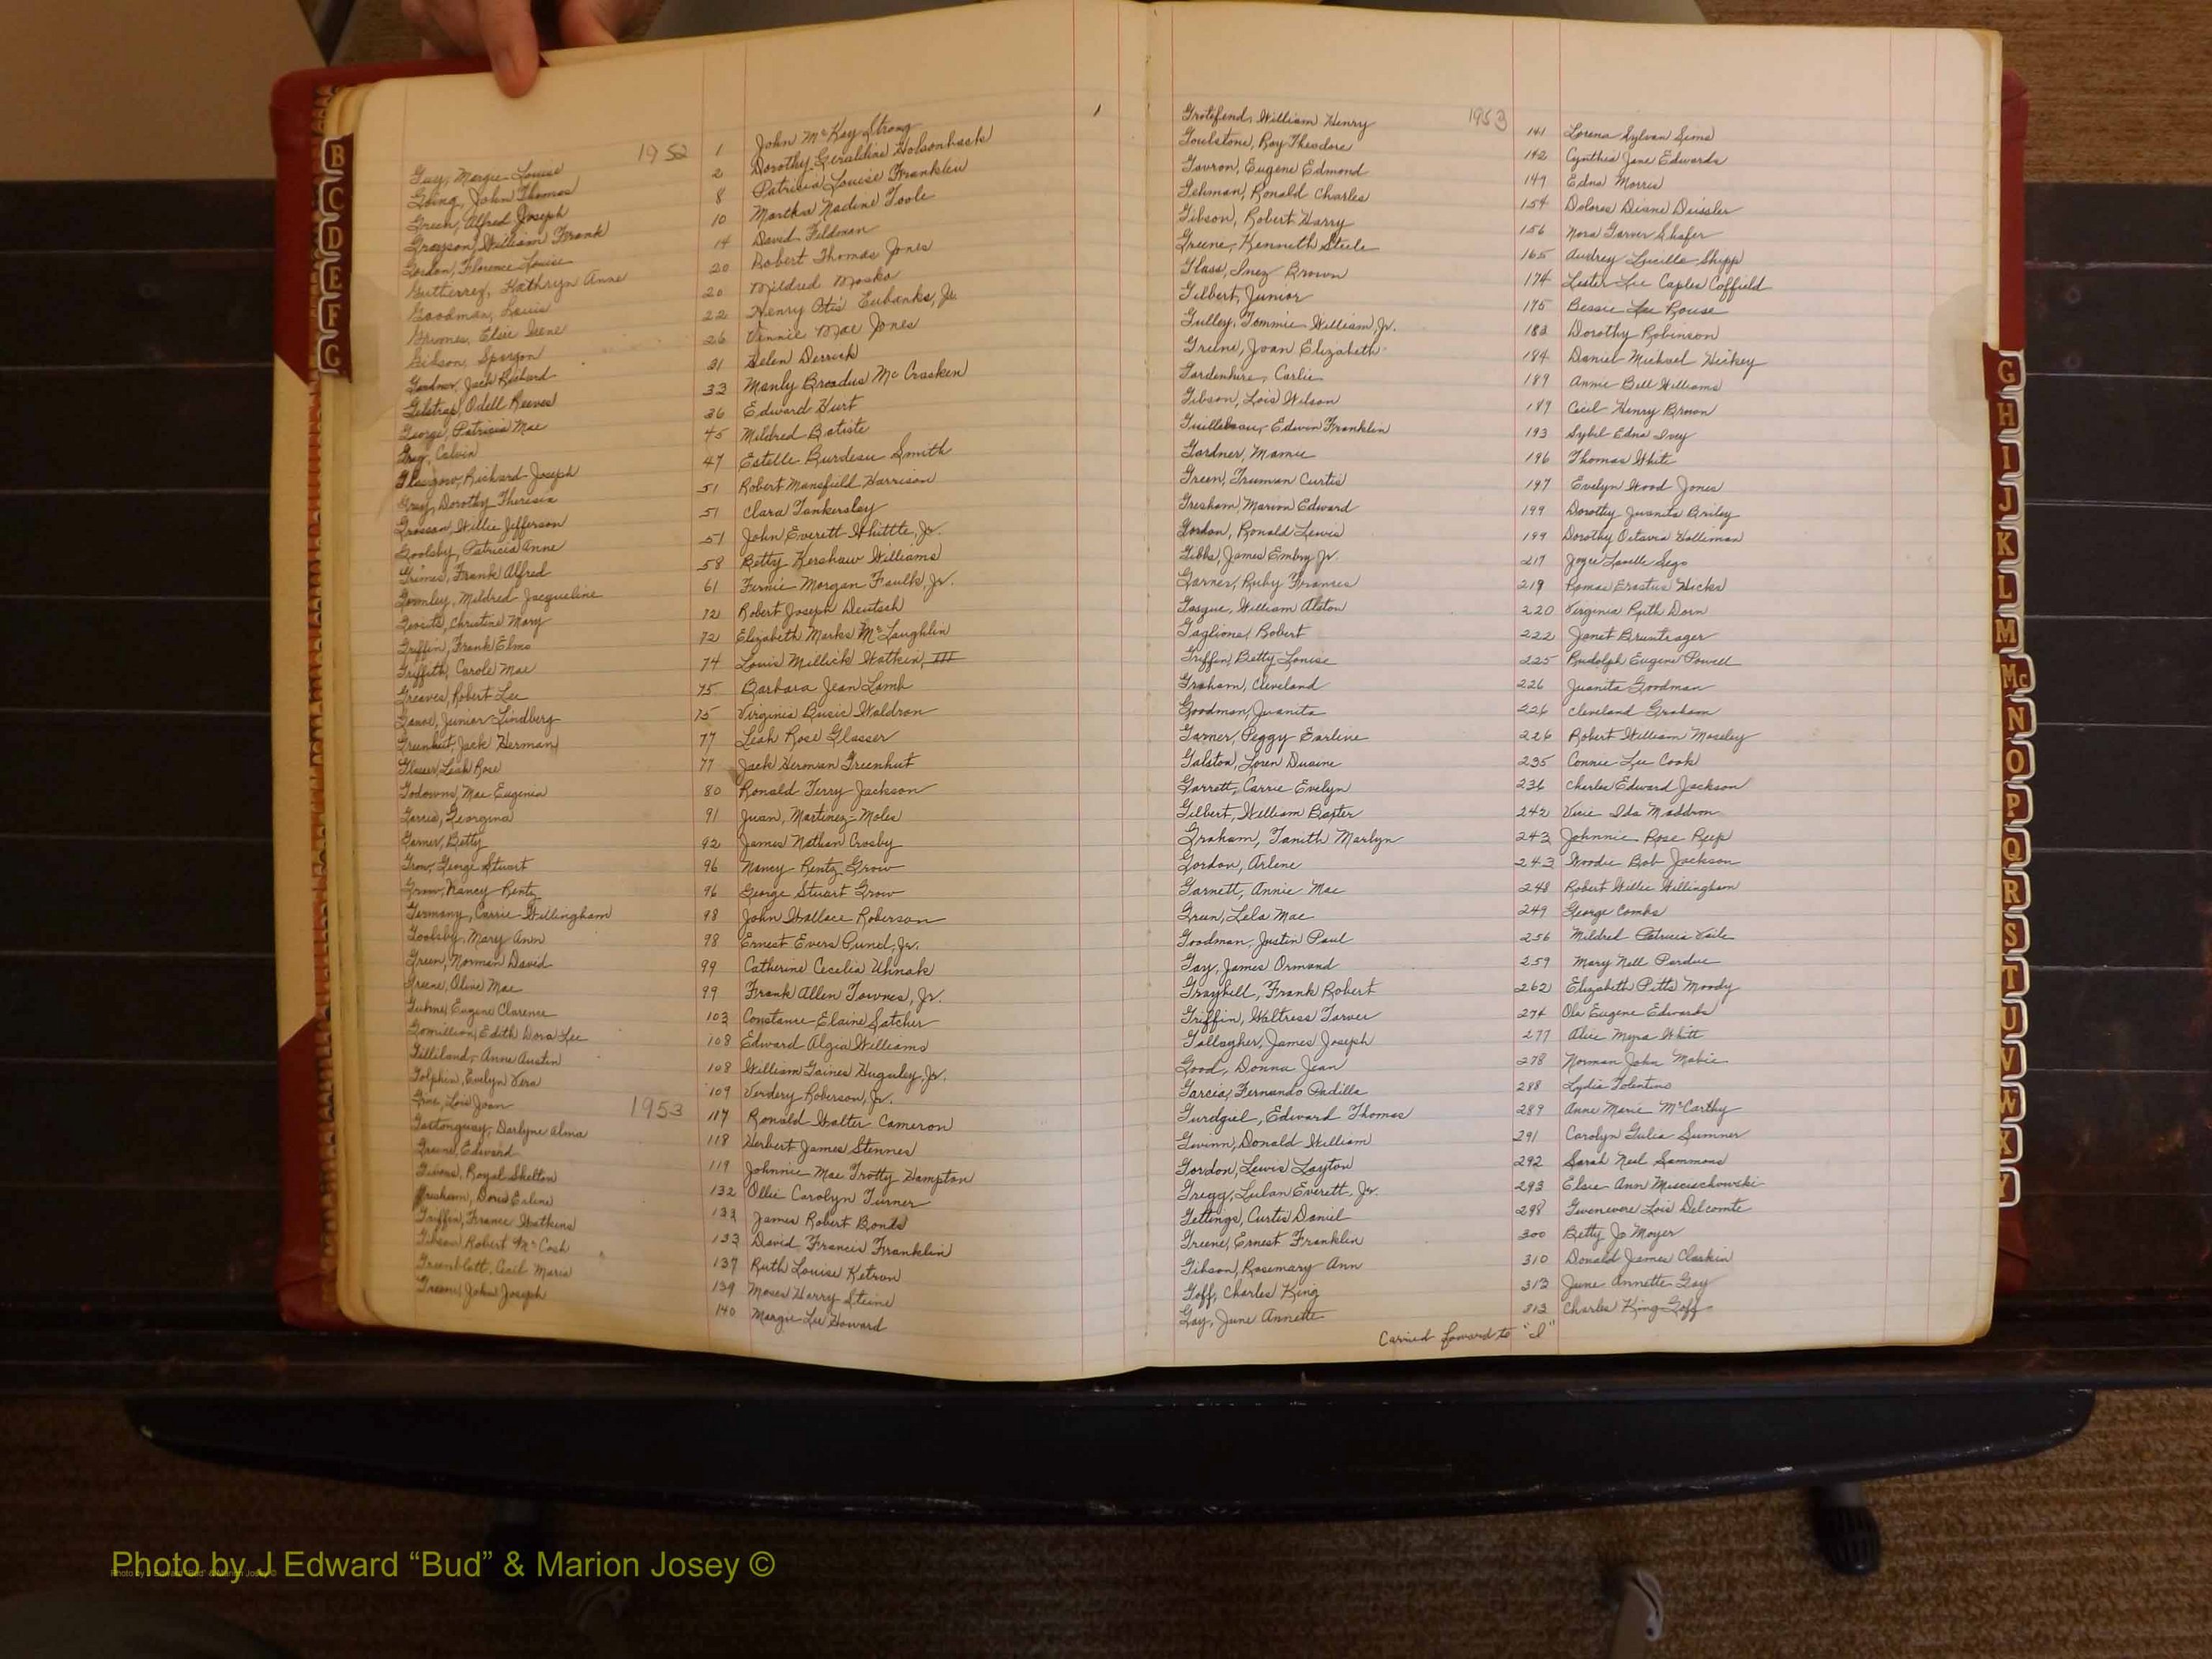 1952
Guy, Margie Louise 1 John McKay Strong
Going, John Thomas 2 Dorothy Geraldine Holsonback
Green, Alfred Joseph 8 Patricia Louise Franklin
Grayson, William Frank 10 Martha Nadine Toole
Gordon, Florence Louise 14 David Feldman
Gutierrez, Kathryn Anne 20 Robert Thomas Jones
Goodman, Louis 20 Mildred Moska
Grimes, Elsie Irene 22 Henry Otis Eubanks, Jr.
Gibson, Spurgon 26 Vennie Mae Jones
Gardner, Jack Richard 31 Helen Derrick
Gilstrap, Odell Reeves 33 Manly Broadus McCracken
George, Patricia Mae 36 Edward Hurt
Gray, Calvin 45 Mildred Batiste
Glasgow, Richard Joseph 47 Estelle Burdeau Smith
Gray, Dorothy Theresia 51 Robert Mansfield Harrison
Willie Jefferson 51 Clara Tankersley
Goolsby, Patricia Anne 51 John Everett Whittle, Jr.
Grimes, Frank Alfred 58 Betty Kershaw Williams
Gormley, Mildred Jacqueline 61 Fernie Morgan Faulk, Jr.
Christine Mary 72 Robert Joseph Deutsch
Griffin, Frank Elmo 72 Elizabeth Marks McLaughlin
Griffith, Carole Mae 74 Louis Millick Watkins III
Greaves, Robert Lee 75 Barbara Jean Lamb
Ganoe, Junior Lindberg 75 Virginia Busic Waldron
Greenhut, Jack Herman 77 Leah Rose Glasser
Glasser, Leah Rose 77 Jack Herman Greenhut
Godowns, Mae Eugenia 80 Ronald Terry Jackson
Garcia, Georgina 91 Juan, Martinez-Moles
Garner, Betty 92 James Nathan Crosby
Grow, George Stuart 96 Nancy Rentz Grow
Grow, Nancy Rentz 96 George Stuart Grow
Germany, Carrie Willingham 98 John Wallace Roberson
Goolsby, Mary Ann 98 Ernest Evers Pund, Jr.
Green, Norman David 99 Catherine Cecelia Uhnak
Greene, Olive Mae 99 Frank Allen Townes, Jr.
Eugene Clarence 103 Constance Elaine Satcher
Gomillion, Edith Dora Lee 108 Edward Algia Williams
Gilliland, Anne Austin 108 William Gaines Huguley, Jr.
Golphin, Evelyn Vera 109 Verdery Roberson, Jr.
1953
Lois Joan 117 Ronald Walter Cameron
Gattonguay, Darlyne Alma 118 Herbert James Stennes
Greene, Edward 119 Johnnie Mae Trotty Hampton
Royal Skelton 132 Ollie Carolyn Turner
Grisham, Doris Erline 133 James Robert Bonds
Griffin, France Watkins 133 David Francis Franklin
Gibson, Robert McCash 137 Ruth Louise Ketron
Greenblatt, Cecil Maria 139 Moses Harry Steine
Greene, John Joseph 140 Margie Lee Howard
1953
Grotefend, William Henry 141 Lorena Sylvan Sims
Goulstone, Roy Theodore 142 Cynthia Jane Edwards
Gavron, Eugene Edmond 149 Edna Morris
Gehman, Ronald Charles 154 Dolores Diane Deissler
Gibson, Robert Harry 156 Nora Garver Shafer
Greene, Kenneth Steele 165 Audrey Lucille Shipp
Glass, Inez Brown 174 Lester Lee Caples Coffield
Gilbert, Junior 175 Bessie Lee Rouse
Gulley, Tommie William, Jr. 183 Dorothy Robinson
Greene, Joan Elizabeth 184 Daniel Michael Hickey
Gardenhire, Carlie 189 Annie Bell Williams
Gibson, Lois Wilson 189 Cecil Henry Brown
Guillebeau, Edwin Franklin 193 Sybil Edna Ivey
Gardner, Mamie 196 Thomas White
Green, Truman Curtis 197 Evelyn Wood Jones
Gresham, Marion Edward 199 Dorothy Juanita Briley
Gordon, Ronald Lewis 199 Dorothy Octavia Halliman
Gibbs, James Embry, Jr. 217 Joyce Lavelle Sego
Garner, Ruby Frances 219 Romas Erastus Hicks
Gasque, William Alston 220 Virginia Ruth Dorn
Gaglione, Robert 222 Janet Bruntrager
Griffin, Betty Louise 225 Rudolph Eugene Powell
Graham, Cleveland 226 Juanita Goodman
Goodman, Juanita 226 Cleveland Graham
Garner, Peggy Earline 226 Robert William Moseley
Galston, Loren Duaine 235 Connie Lee Cook
Garrett, Carrie Evelyn 236 Charles Edward Jackson
Gilbert, William Baxter 242 Vivie Ida Maddron
Graham, Tanith Marlyn 243 Johnnie Rose Reep
Gordon, Arlene 243 Woodie Bob Jackson
Garnett, Annie Mae 248 Robert Willie Willingham
Green, Lela Mae 249 George Combs
Goodman, Justin Paul 256 Mildred Patricia Vaile
Gay, James Ormand 259 Mary Nell Perdue
Graybell, Frank Robert 262 Elizabeth Pitts Moody
Griffin, Waltress Tarver 274 Ola Eugene Edwards
Gallagher, James Joseph 277 Alice Myra Whitt
Good, Donna Jean 278 Norman John Mabie
Garcia, Fernando Padilla 288 Lydia Tolentino
Gurdgiel, Edward Thomas 289 Anne Marie McCarthy
Gwinn, Donald William 291 Carolyn Julia Sumner
Gordon, Lewis Layton 292 Sarah Neil Sammons
Gregg, Luban Everett, Jr. 293 Elsie Ann Musciachowski
Gettings, Curtis Daniel 298 Gwenevere Lois Delcomte
Greene, Ernest Franklin 300 Betty Jo Moyer
Gibson, Rosemary Ann 310 Donald James Claskin
Goff, Charles King 313 June Annette Gay
Gay, June Annette 313 Charles King Goff
Carried forward to "I"
B
C
D
E
F
G
G
H
I
J
K
L
M
Mc
N
O
P
Q
R
S
T
U
V
W
X
Y
Photo by J Edward “Bud” & Marion Josey ©
Photo by J Edward "Bud" & Marion Josey ©